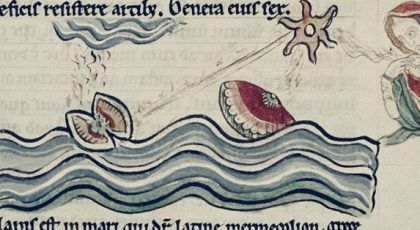 eficiis resistere artibꝫ. Genera eius sex.
lapis est in mari qui dr̄ latine mermecolion. grece